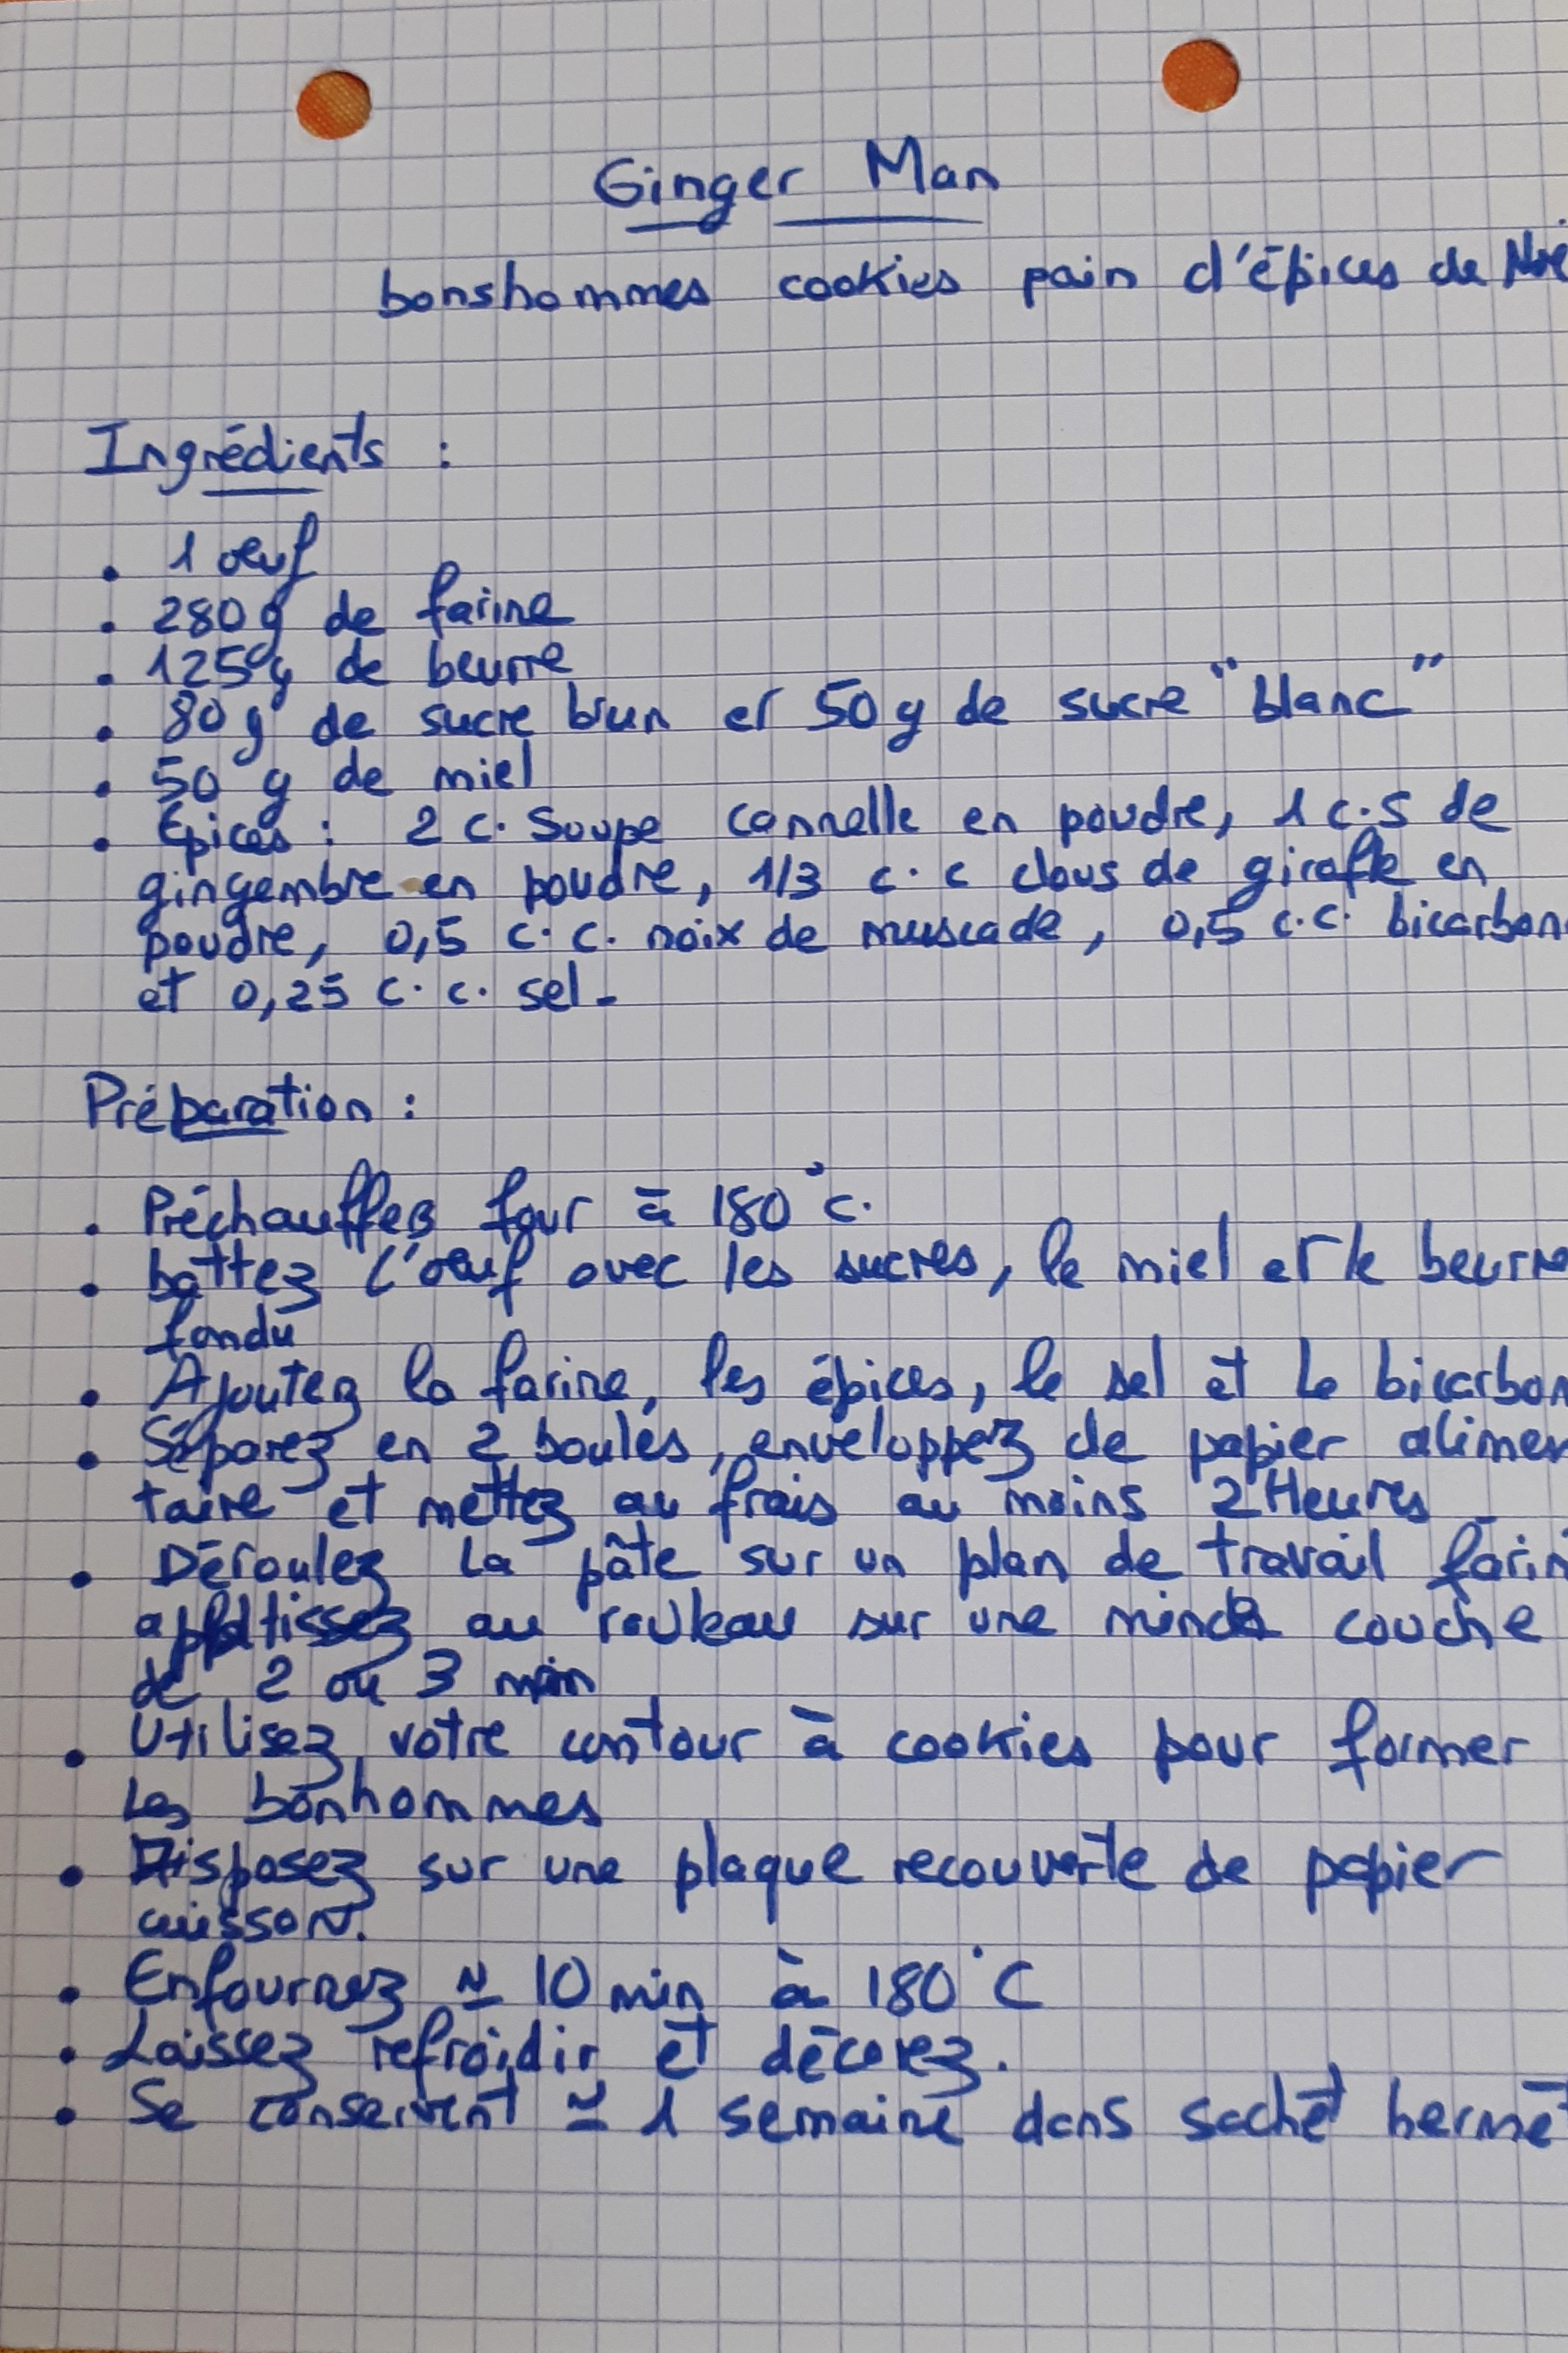 Ginger Man
bonshommes cookies pain d'épices de Noë
Ingrédients :
. 1 oeuf
. 280g de farine
. 125g de beurre
. 80g de sucre brun et 50g de sucre "blanc"
. 50 g de miel
. Epices : 2 c. Soupe cannelle en poudre, 1 c.s de
gingembre en poudre, 1/3 c.c clous de girofle en
poudre, 0,5 c.c. noix de muscade, 0,5 c.c. bicarbon
et 0,25 c.c. sel.
Préparation :
. Préchauffez four à 180°c.
. battez l'oeuf avec les sucres, le miel et le beurre
fondu
. Ajoutez la farine, les épices, le sel et le bicarbon
. Séparez en 2 boules, enveloppez de papier alimen
taire et mettez au frais au moins 2 Heures
. Déroulez la pâte sur un plan de travail farin
applatissez au rouleau sur une mince couche
de 2 ou 3 mm
. Utilisez votre contour à cookies pour former
les bonhommes
. Disposez sur une plaque recouverte de papier
cuisson.
. Enfournez ≃ 10 min à 180°C
. Laissez refroidir et décorez.
. Se conservent ≃ 1 semaine dans sachet hermé